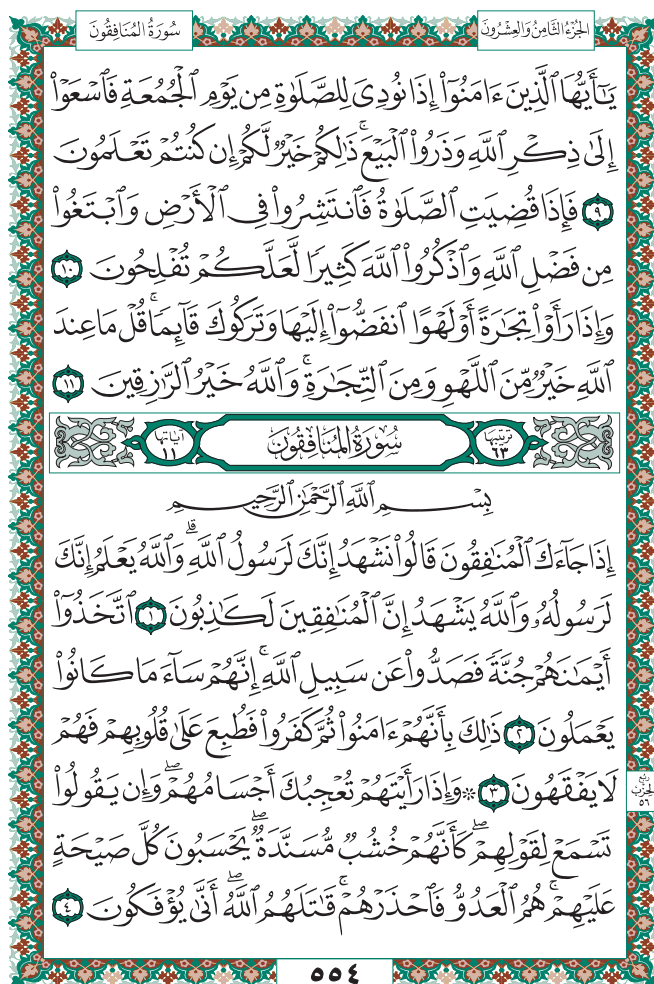 الجُزْءُ الثَّامِنُ وَالعِشْرُونَ
سُورَةُ المُنَافِقُونَ
يَـٰٓأَيُّهَا ٱلَّذِينَ ءَامَنُوٓا۟ إِذَا نُودِىَ لِلصَّلَوٰةِ مِن يَوْمِ ٱلْجُمُعَةِ فَٱسْعَوْا۟
إِلَىٰ ذِكْرِ ٱللَّهِ وَذَرُوا۟ ٱلْبَيْعَ ۚ ذَٰلِكُمْ خَيْرٌ لَّكُمْ إِن كُنتُمْ تَعْلَمُونَ
٩ فَإِذَا قُضِيَتِ ٱلصَّلَوٰةُ فَٱنتَشِرُوا۟ فِى ٱلْأَرْضِ وَٱبْتَغُوا۟
مِن فَضْلِ ٱللَّهِ وَٱذْكُرُوا۟ ٱللَّهَ كَثِيرًا لَّعَلَّكُمْ تُفْلِحُونَ ١٠
وَإِذَا رَأَوْا۟ تِجَـٰرَةً أَوْ لَهْوًا ٱنفَضُّوٓا۟ إِلَيْهَا وَتَرَكُوكَ قَآئِمًا ۚ قُلْ مَا عِندَ
ٱللَّهِ خَيْرٌ مِّنَ ٱللَّهْوِ وَمِنَ ٱلتِّجَـٰرَةِ ۚ وَٱللَّهُ خَيْرُ ٱلرَّٰزِقِينَ ١١
ترتيبها ٦٣ سُورَةُ المُنَافِقُونَ آياتها ١١
بِسْمِ ٱللَّهِ ٱلرَّحْمَـٰنِ ٱلرَّحِيمِ
إِذَا جَآءَكَ ٱلْمُنَـٰفِقُونَ قَالُوا۟ نَشْهَدُ إِنَّكَ لَرَسُولُ ٱللَّهِ ۗ وَٱللَّهُ يَعْلَمُ إِنَّكَ
لَرَسُولُهُۥ وَٱللَّهُ يَشْهَدُ إِنَّ ٱلْمُنَـٰفِقِينَ لَكَـٰذِبُونَ ١ ٱتَّخَذُوٓا۟
أَيْمَـٰنَهُمْ جُنَّةً فَصَدُّوا۟ عَن سَبِيلِ ٱللَّهِ ۚ إِنَّهُمْ سَآءَ مَا كَانُوا۟
يَعْمَلُونَ ٢ ذَٰلِكَ بِأَنَّهُمْ ءَامَنُوا۟ ثُمَّ كَفَرُوا۟ فَطُبِعَ عَلَىٰ قُلُوبِهِمْ فَهُمْ
لَا يَفْقَهُونَ ٣ ۞ وَإِذَا رَأَيْتَهُمْ تُعْجِبُكَ أَجْسَامُهُمْ ۖ وَإِن يَقُولُوا۟
ربع الحزب ٥٦
تَسْمَعْ لِقَوْلِهِمْ ۖ كَأَنَّهُمْ خُشُبٌ مُّسَنَّدَةٌ ۖ يَحْسَبُونَ كُلَّ صَيْحَةٍ
عَلَيْهِمْ ۚ هُمُ ٱلْعَدُوُّ فَٱحْذَرْهُمْ ۚ قَـٰتَلَهُمُ ٱللَّهُ ۖ أَنَّىٰ يُؤْفَكُونَ ٤
٥٥٤